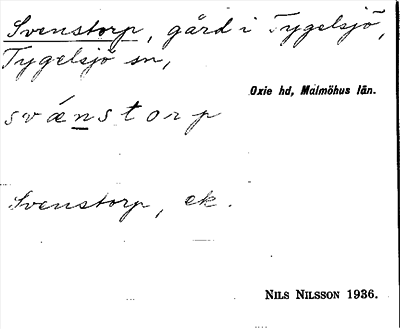 Svenstorp, gård i Tygelsjö,
Tygelsjö sn,
Oxie hd, Malmöhus län.
svǽnstorp
Svenstorp, ek.
NILS NILSSON 1936.